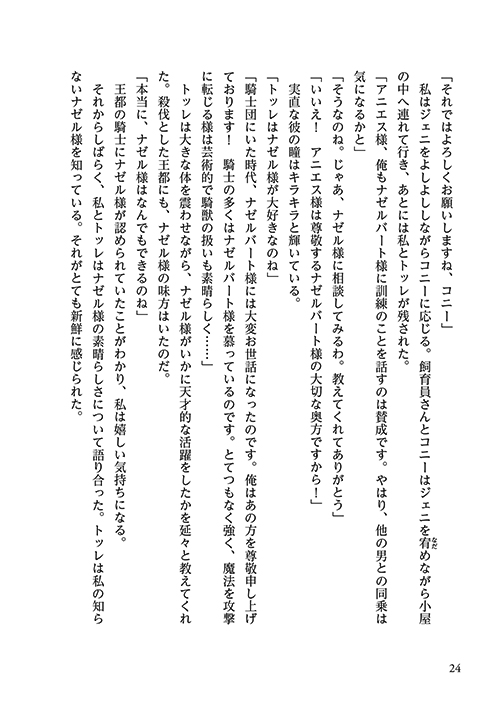 「それではよろしくお願いしますね、コニー」
私はジェニをよしよししながらコニーに応じる。飼育員さんとコニーはジェニを宥めながら小屋
なだ
の中へ連れて行き、あとには私とトッレが残された。
「アニエス様、俺もナゼルバート様に訓練のことを話すのは賛成です。やはり、他の男との同乗は
気になるかと」
「そうなのね。じゃあ、ナゼル様に相談してみるわ。教えてくれてありがとう」
「いいえ！　アニエス様は尊敬するナゼルバート様の大切な奥方ですから！」
実直な彼の瞳はキラキラと輝いている。
「トッレはナゼル様が大好きなのね」
「騎士団にいた時代、ナゼルバート様には大変お世話になったのです。俺はあの方を尊敬申し上げ
ております！　騎士の多くはナゼルバート様を慕っているのです。とてつもなく強く、魔法を攻撃
に転じる様は芸術的で騎獣の扱いも素晴らしく……」
トッレは大きな体を震わせながら、ナゼル様がいかに天才的な活躍をしたかを延々と教えてくれ
た。殺伐とした王都にも、ナゼル様の味方はいたのだ。
「本当に、ナゼル様はなんでもできるのね」
王都の騎士にナゼル様が認められていたことがわかり、私は嬉しい気持ちになる。
それからしばらく、私とトッレはナゼル様の素晴らしさについて語り合った。トッレは私の知ら
ないナゼル様を知っている。それがとても新鮮に感じられた。
24